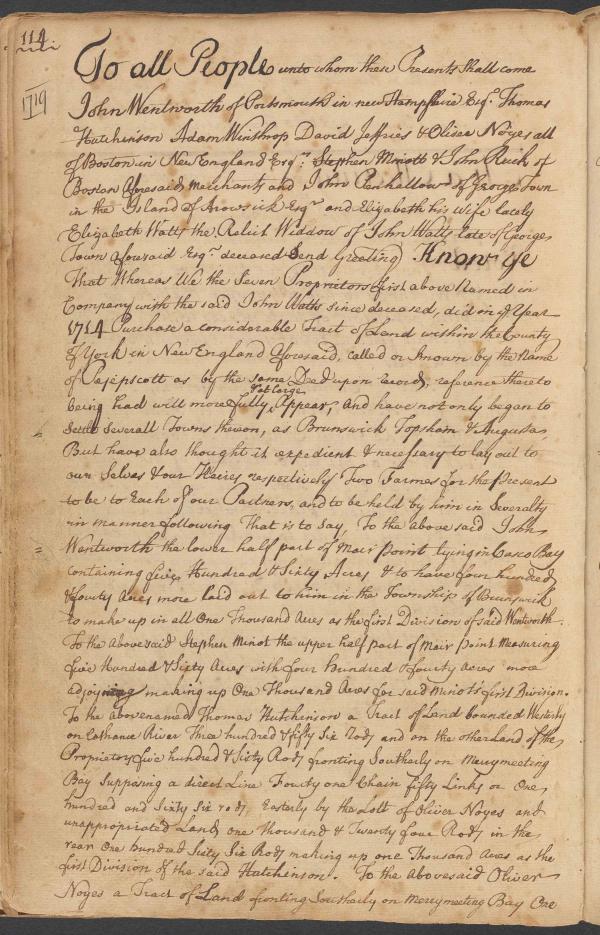 114
1719
To all People unto whom these Presents Shall come
John Wentworth of Portsmouth in new Hampshire Esqr. Thomas
Hutchinson Adam Winthrop David Jeffries & Oliver Noyes all
of Boston in New England Esqrs. Stephen Minott & John Ruck of
Boston aforesaid Merchants and John Penhallow of George Town
in the Island of Arowsick Esqr and Elizabeth his Wife lately
Elizabeth Watts the Relict Widdow of John Watts late of George
Town aforesaid Esqr. deceased Send Greeting Know ye
That Whereas We the Seven Proprietors first above Named in
Company with the said John Watts since deceased, did in ye Year
1714 Purchase a considerable Tract of Land within the County
of York in New England aforesaid, called or known by the Name
of Pejepscott as by the same Deed upon record, reference thereto
being had will more fully, at large Appear, and have not only began to
Settle Severall Towns thereon, as Brunswick Topsham & Augusta
But have also thought it expedient & necessary to lay out to
our Selves & our Heires respectively Two Farmes for the Present
to be to Each of our Partners, and to be held by him in Severalty
in manner following That is to Say, To the above said John
Wentworth the lower half part of Mair point lying in Casco Bay
containing five Hundred & Sixty Acres & to have four hundred
& fourty Acres more laid out to him in the Township of Brunswick
to make up in all One Thousand Acres as the first Division of said Wentworth.
To the abovesaid Stephen Minot the upper half part of Mair point Measuring
five Hundred & Sixty Acres with four Hundred & fourty Acres more
adjoyning making up One Thousand Acres for said Minots first Division.
To the abovenamed Thomas Hutchinson a Tract of Land bounded Westerly
on Cathance River three hundred & fifty Six Rods and on the other Land of the
Proprietors five hundred & Sixty Rods fronting Southerly on Merrymeeting
Bay Supposing a direct Line Fourty one Chain fifty Links or One
hundred and Sixty Six rods, Easterly by the Lott of Oliver Noyes and
unappropriated Land one thousand & Twenty four Rods in the
rear One Hundred Sixty Six Rods making up one Thousand Acres as the
first Division of the said Hutchinson. To the abovesaid Oliver
Noyes a Tract of Land fronting Southerly on Merrymeeting Bay One